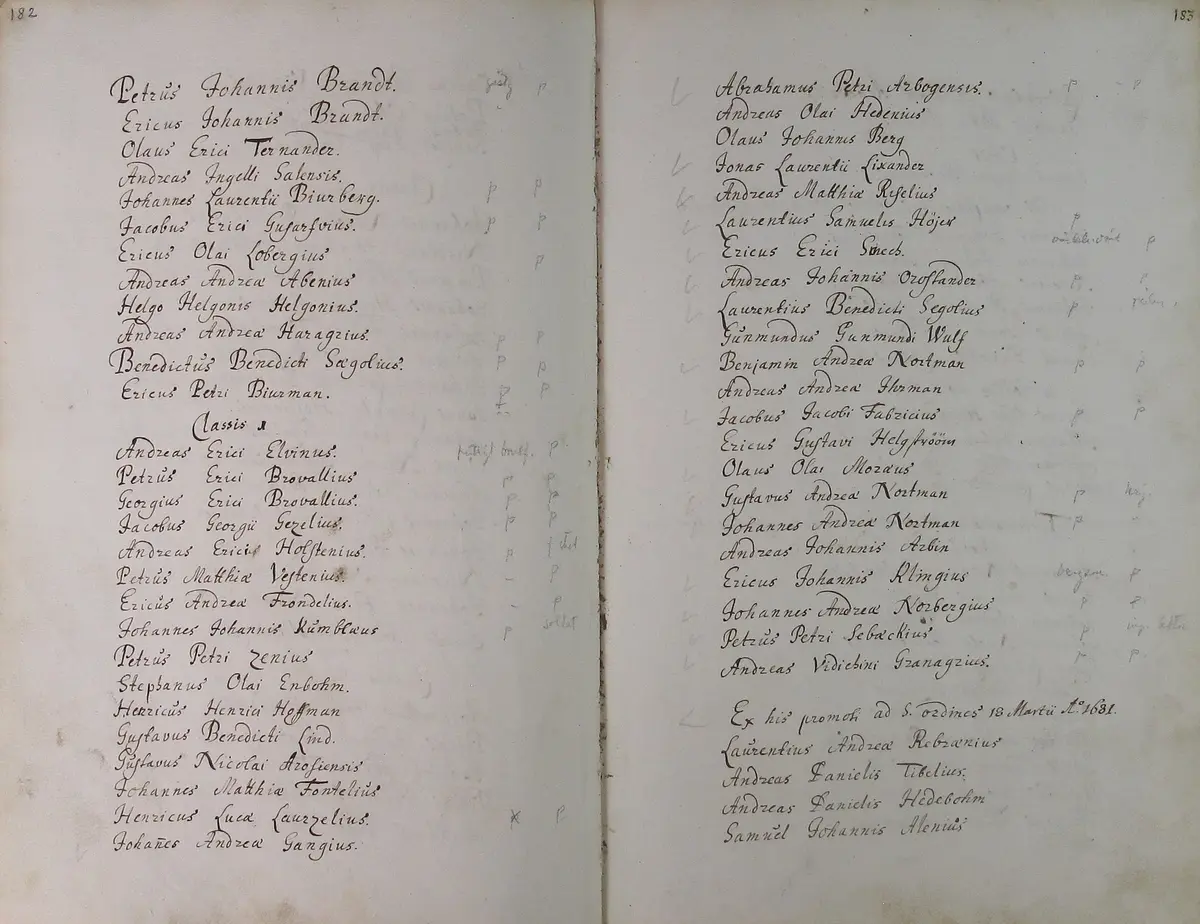 182
Petrus Johannis Brandt.
Ericus Johannis Brandt.
Olaus Erici Ternander.
Andreas Ingelli Salensis.
Johannes Laurentii Biurberg. p p
Jacobus Erici p p
Ericus Olai Lobergius p
Andreas Andreæ Abenius
Helgo Helgonis Helgonius.
Andreas Andreæ Haragrius. p p
Benedictus Benedicti Sægolius. p p
Ericus Petri Biurman. p p
Classis 1
Andreas Erici Elvinus. p
Petrus Erici Brovallius p p
Georgius Erici Brovallius. p p
Jacobus Georgii Gezelius. p p
Andreas Erici Holstenius. p
Petrus Matthiæ Vestenius. - p
Ericus Andreæ Frondelius. - p
Johannes Johannis Kumblæus p
Petrus Petri Zenius
Stephanus Olai Enbohm.
Henricus Henrici Hoffman
Gustavus Benedicti Lind.
Gustavus Nicolai Arosiensis
Johannes Matthiæ Fontelius
Henricus Lucæ Laurzelius. x p
Johan̄es Andreæ Gangius.
183
Abrahamus Petri Arbogensis. p - p
Andreas Olai Hedenius
Olaus Johannis Berg
Jonas Laurentii Lixander
Andreas Matthiæ Riselius
Laurentius Samuelis Höjer p
Ericus Erici p
Andreas Johannis Orostander p
Laurentius Benedicti Segolius p
Gunmundus Gunmundi Wulf
Benjamin Andreæ Nortman p p
Andreas Andreæ Ihrman
Jacobus Jacobi Fabricius p p
Ericus Gustavi Helgströöm
Olaus Olai Moræus
Gustavus Andreæ Nortman p
Johannes Andreæ Nortman p
Andreas Johannis Arbin
Ericus Johannis Klingius p
Johannes Andreæ Norbergius p p
Petrus Petri Sebackius p
Andreas Vidichini Granagrius. p
Ex his promoti ad S. ordines 18 Martii Aº 1681.
Laurentius Andreæ Rebrænius
Andreas Danielis Tibelius.
Andreas Danielis Hedebohm
Samuel Johannis Alenius